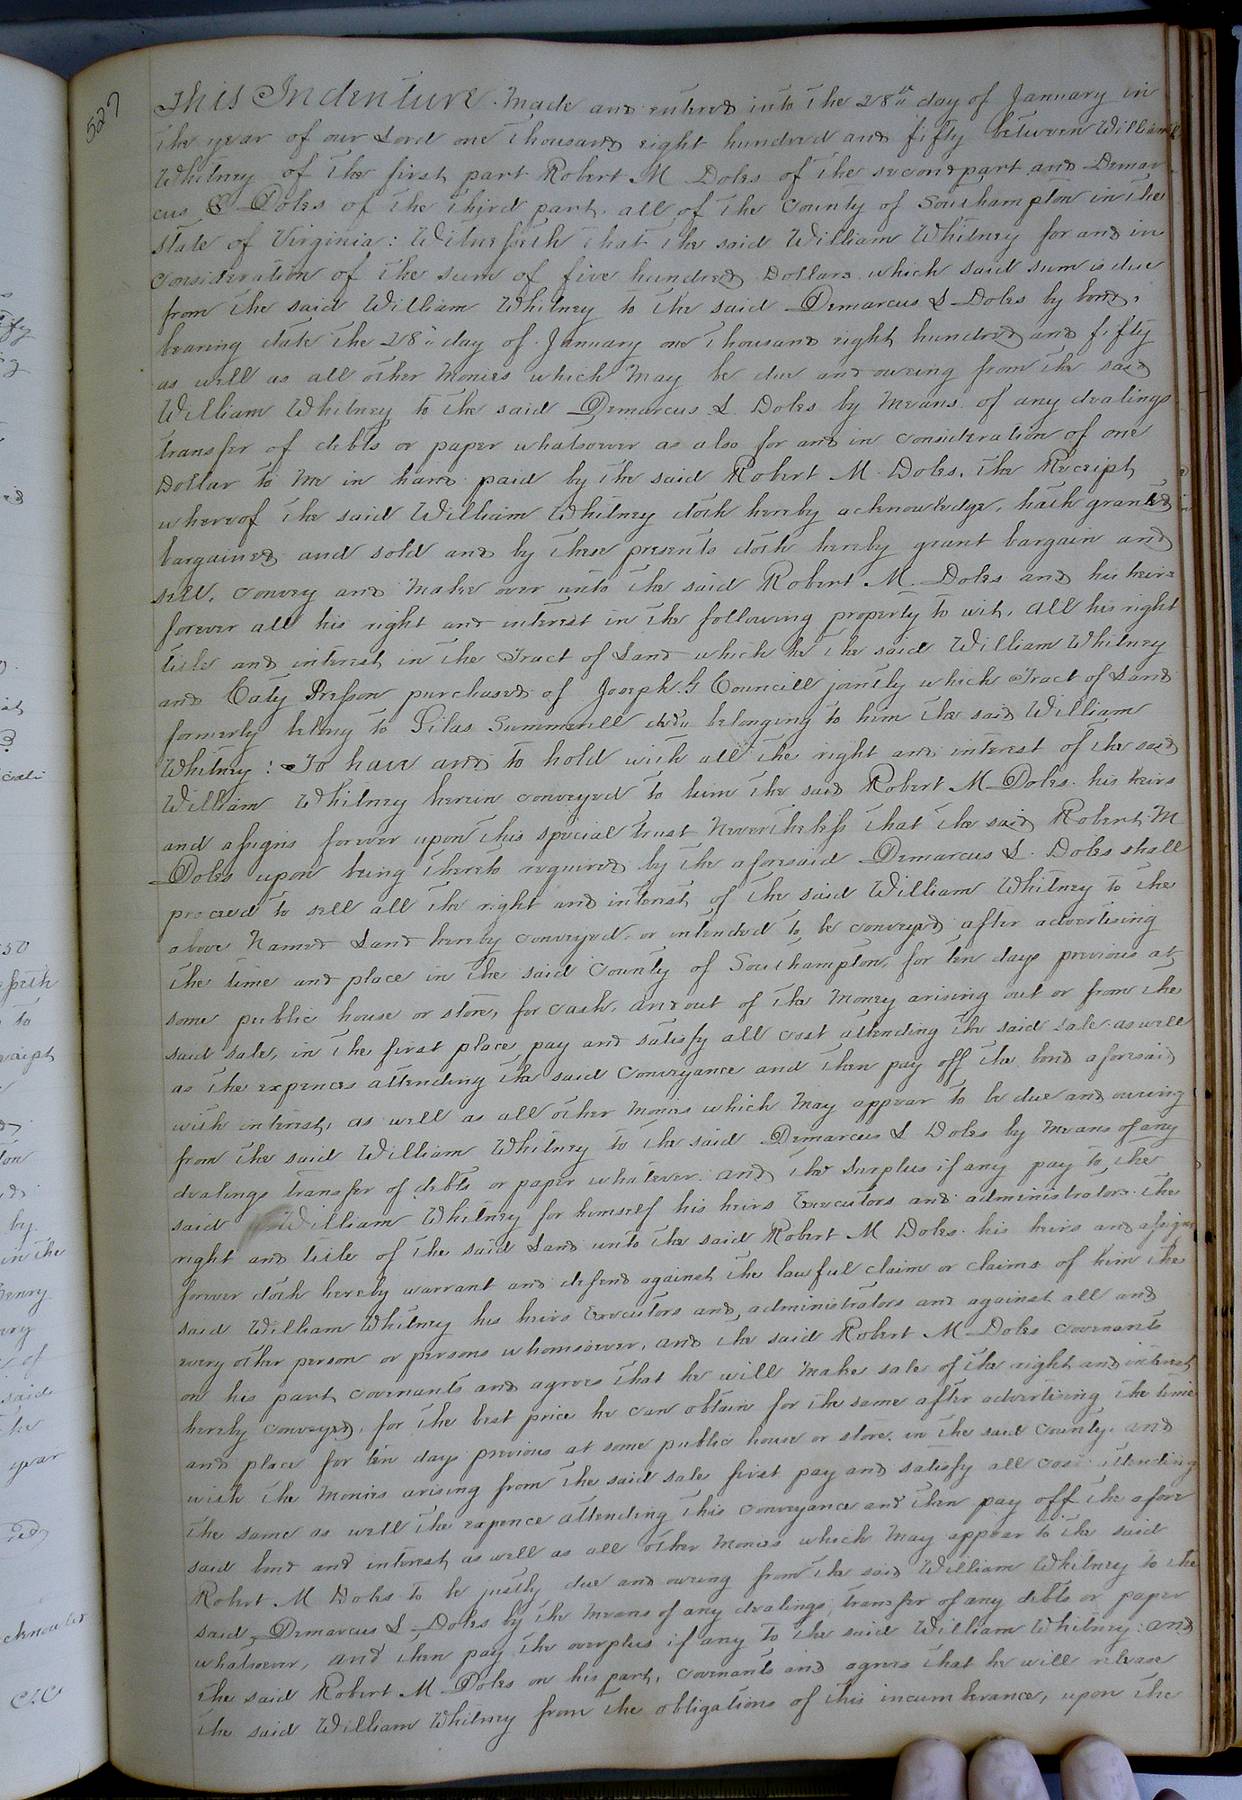 527
This Indenture Made and entered into the 28th day of January in
the year of our Lord one thousand eight hundred and fifty between William
Whitney of the first part Robert M Doles of the second part and Demar
cus S Doles of the third part, all of the County of Southampton in the
State of Virginia: Witnesseth that the said William Whitney for and in
consideration of the sum of five hundred Dollars which said sum is due
from the said William Whitney to the said Demarcus S Doles by bond,
bearing date the 28th day of January one thousand eight hundred and fifty
as well as all other Monies which May be due and owing from the said
William Whitney to the said Demarcus S. Doles by Means of any dealings
transfer of debts or paper whatsoever as also for and in consideration of one
Dollar to Me in hand paid by the said Robert M. Doles, the Receipt
whereof the said William Whitney doth hereby acknowledge, hath granted
bargained and sold and by these presents doth hereby grant bargain and
sell, convey and Make over unto the said Robert M. Doles and his heirs
forever all his right and interest in the following property to wit, all his right
title and interest in the Tract of Land which he the said William Whitney
and Caty Presson purchased of Joseph G Councill jointly which Tract of Land
formerly belong to Silas Summerell decd belonging to him the said William
Whitney: To have and to hold with all the right and interest of the said
William Whitney herein conveyed to him the said Robert M Doles his heirs
and assigns forever upon this special trust Nevertheless that the said Robert M
Doles upon being thereto required by the aforesaid Demarcus S. Doles shall
proceed to sell all the right and interest of the said William Whitney to the
above Named Land hereby conveyed or intended to be conveyed after advertising
the time and place in the said County of Southampton, for ten days previous at
some public house or store, for cash, and out of the Money arising out or from the
said sale, in the first place pay and satisfy all cost attending the said sale as well
as the expences attending the said Conveyance and then pay off the bond aforesaid
with interest, as well as all other Monies which May appear to be due and owing
from the said William Whitney to the said Demarcus S Doles by Means of any
dealings transfer of debts or paper whatever and the Surplus if any pay to the
said William Whitney for himself his heirs Executors and administrators the
right and title of the said Land unto the said Robert M Doles his heirs and assigns
forever doth hereby warrant and defend against the lawful claim or claims of him the
said William Whitney his heirs Executors and administrators and against all and
every other person or persons whomsoever, and the said Robert M Doles covenants
on his part covenants and agrees that he will Make sale of the right and interest
hereby conveyed, for the best price he can obtain for the same after advertising the time
and place for ten days previous at some public house or store in the said County, and
with the Monies arising from the said sale first pay and satisfy all cost attending
the same as well the expence attending this conveyance and then pay off the afore
said bond and interest as well as all other Monies which May appear to the said
Robert M Doles to be justly due and owing from the said William Whitney to the
said Demarcus S Doles by the Means of any dealings, transfer of any debts or paper
whatsoever, and then pay the overplus if any to the said William Whitney: and
the said Robert M Doles on his part, covenants and agrees that he will release
the said William Whitney from the obligations of this incumberance, upon the